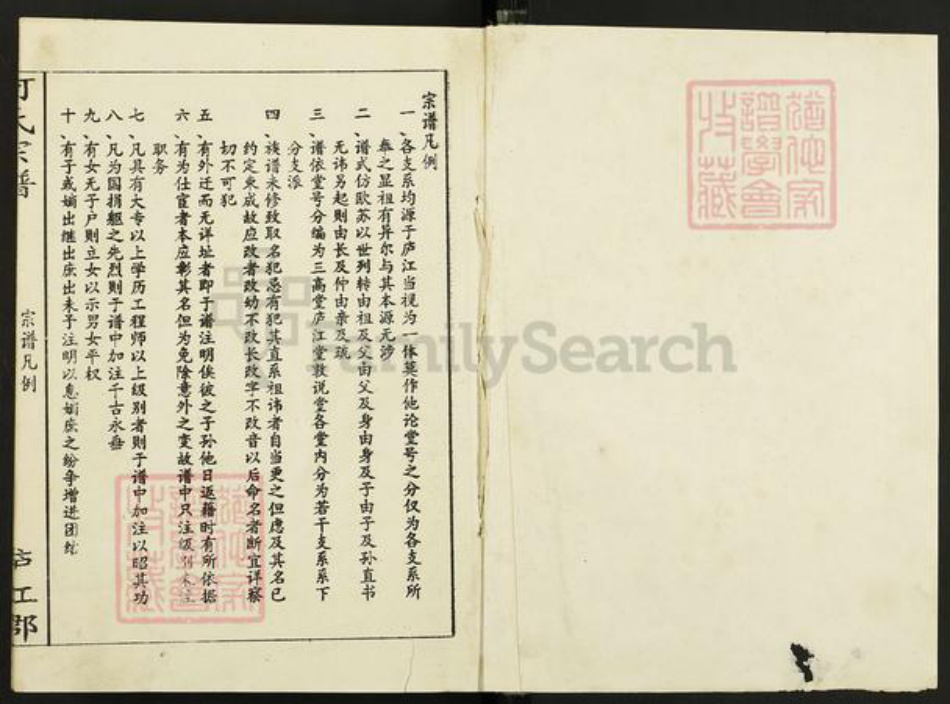 宗谱凡例
一、各支系均源于庐江当视为一体莫作他论堂号之分仅为各支系所
奉之显祖有异尔与其本源无涉
二、谱式仿欧苏以世列转由祖及父由父及身由身及子由子及孙直书
无讳另起则由长及仲由亲及疏
三、谱依堂号分编为三高堂庐江堂敦说堂各堂内分为若干支系系下
分支派
四、族谱未修致取名犯忌有犯其直系祖讳者自当更之但虑及其名已
约定来成故应改者改幼不改长改字不改音以后命名者断宜详察
切不可犯
五、有外迁而无详址者即于谱注明俟彼之子孙他日返籍时有所依据
六、有为仕宦者本应彰其名但为免除意外之变故谱中只注级别未注
职务
七、凡具有大专以上学历工程师以上级别者则于谱中加注以昭其功
八、凡为国捐躯之先烈则于谱中加注千古永垂
九、有女无子户则立女以示男女平权
十、有子或嫡出继出庶出未予注明以息嫡庶之纷争增进团结
何氏宗谱
宗谱凡例
庐江郡
FamilySearch